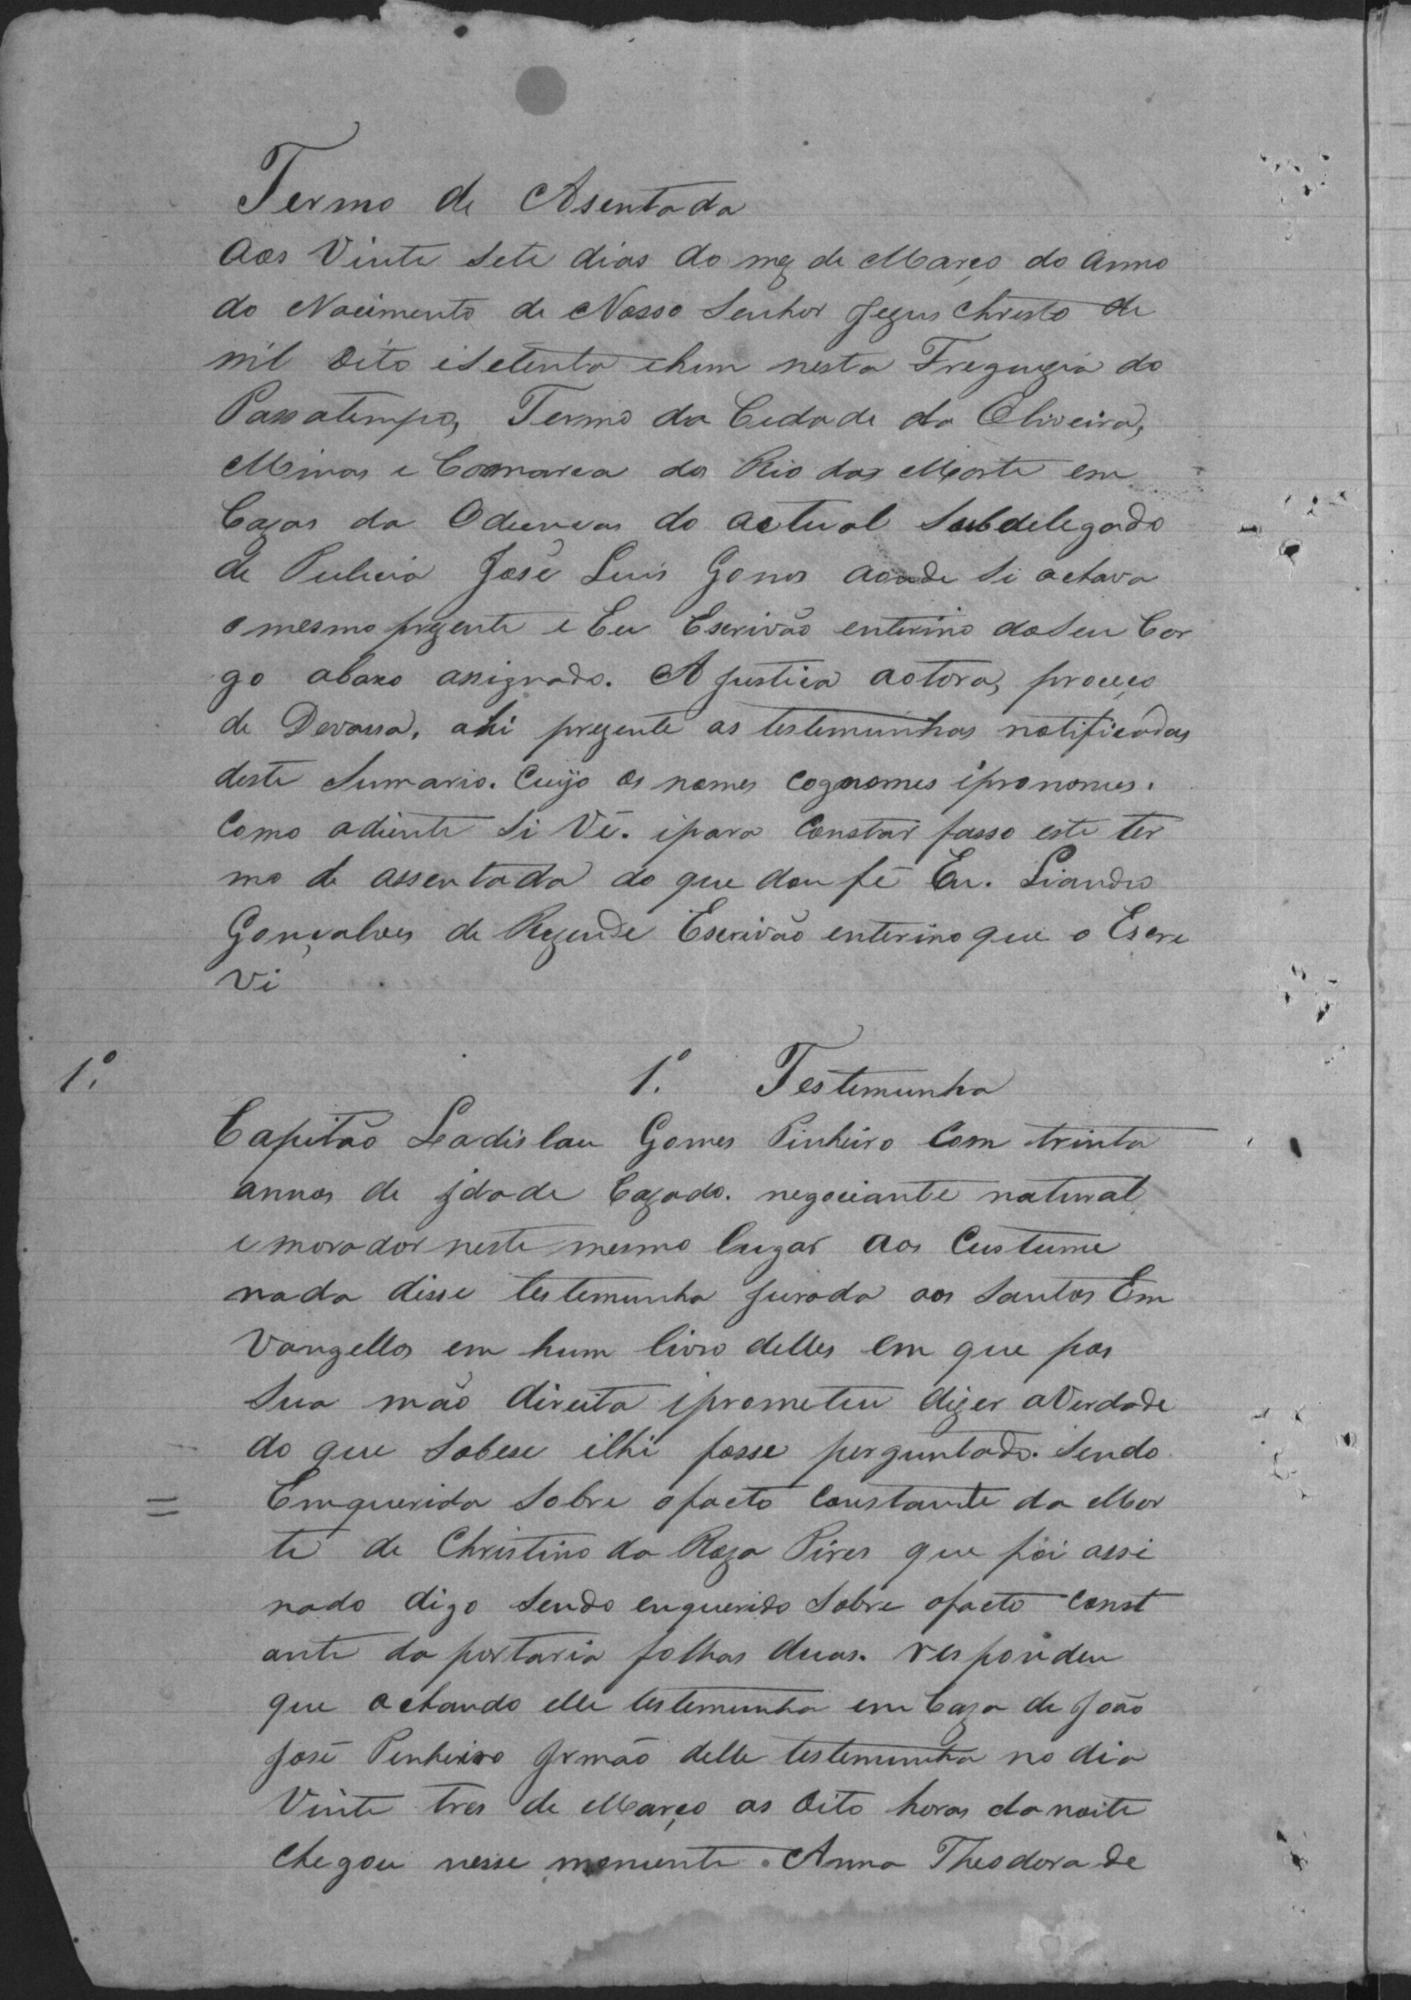 Termo de Asentada
Aos Vinte Sete dias do mez de Março do anno
do Nacimento de Nosso Senhor Jezus Christo de
mil Oito i Setenta ehum nesta Freguezia do
Passatempo, Termo da Cidade da Oliveira,
Minas e Coomarca do Rio das Morte em
Cazas da Odiencias do actual Subdelegado
de Pulicia José Luis Gomes aonde Si achava
o mesmo prezente e Eu Escrivão enterino do Seu Car
go abaxo assignado. A justica aotora, proceço
de Devassa, ahi prezente as testemunhas notificadas
deste Sumario. Cuijo os nomes cognomes ipronomes.
Como adiente Si Vê. ipara Constar fasso este ter
mo de assentada do que dou fé Eu. Liandro
Gonçalves de Rezende Escrivão enterino que o Escre
Vi
1º. 1º. Testemunha
Capitão Ladislau Gomes Pinheiro Com trinta
annos de jdade Cazado. negociante natural
e morador neste mesmo lugar aos Custume
nada disse testemunha jurada aos Santos Em
Vangellos em hum livro delles em que pos
Sua mão direita iprometeu dizer aVerdade
do que Sobese ilhi fosse perguntado. Sendo
= Emquerida Sobre ofacto Constante da Mor
te de Christino da Roza Pires que foi assi
nado digo Sendo enquerido Sobre ofacto Const
ante da portaria folhas duas. respondeu
que achando elle testemunha em Caza de João
José Pinheiro Jrmão delle testemunha no dia
Vinte tres de Março as Oito horas da noite
chegou nesse momente. Anna Theodora de